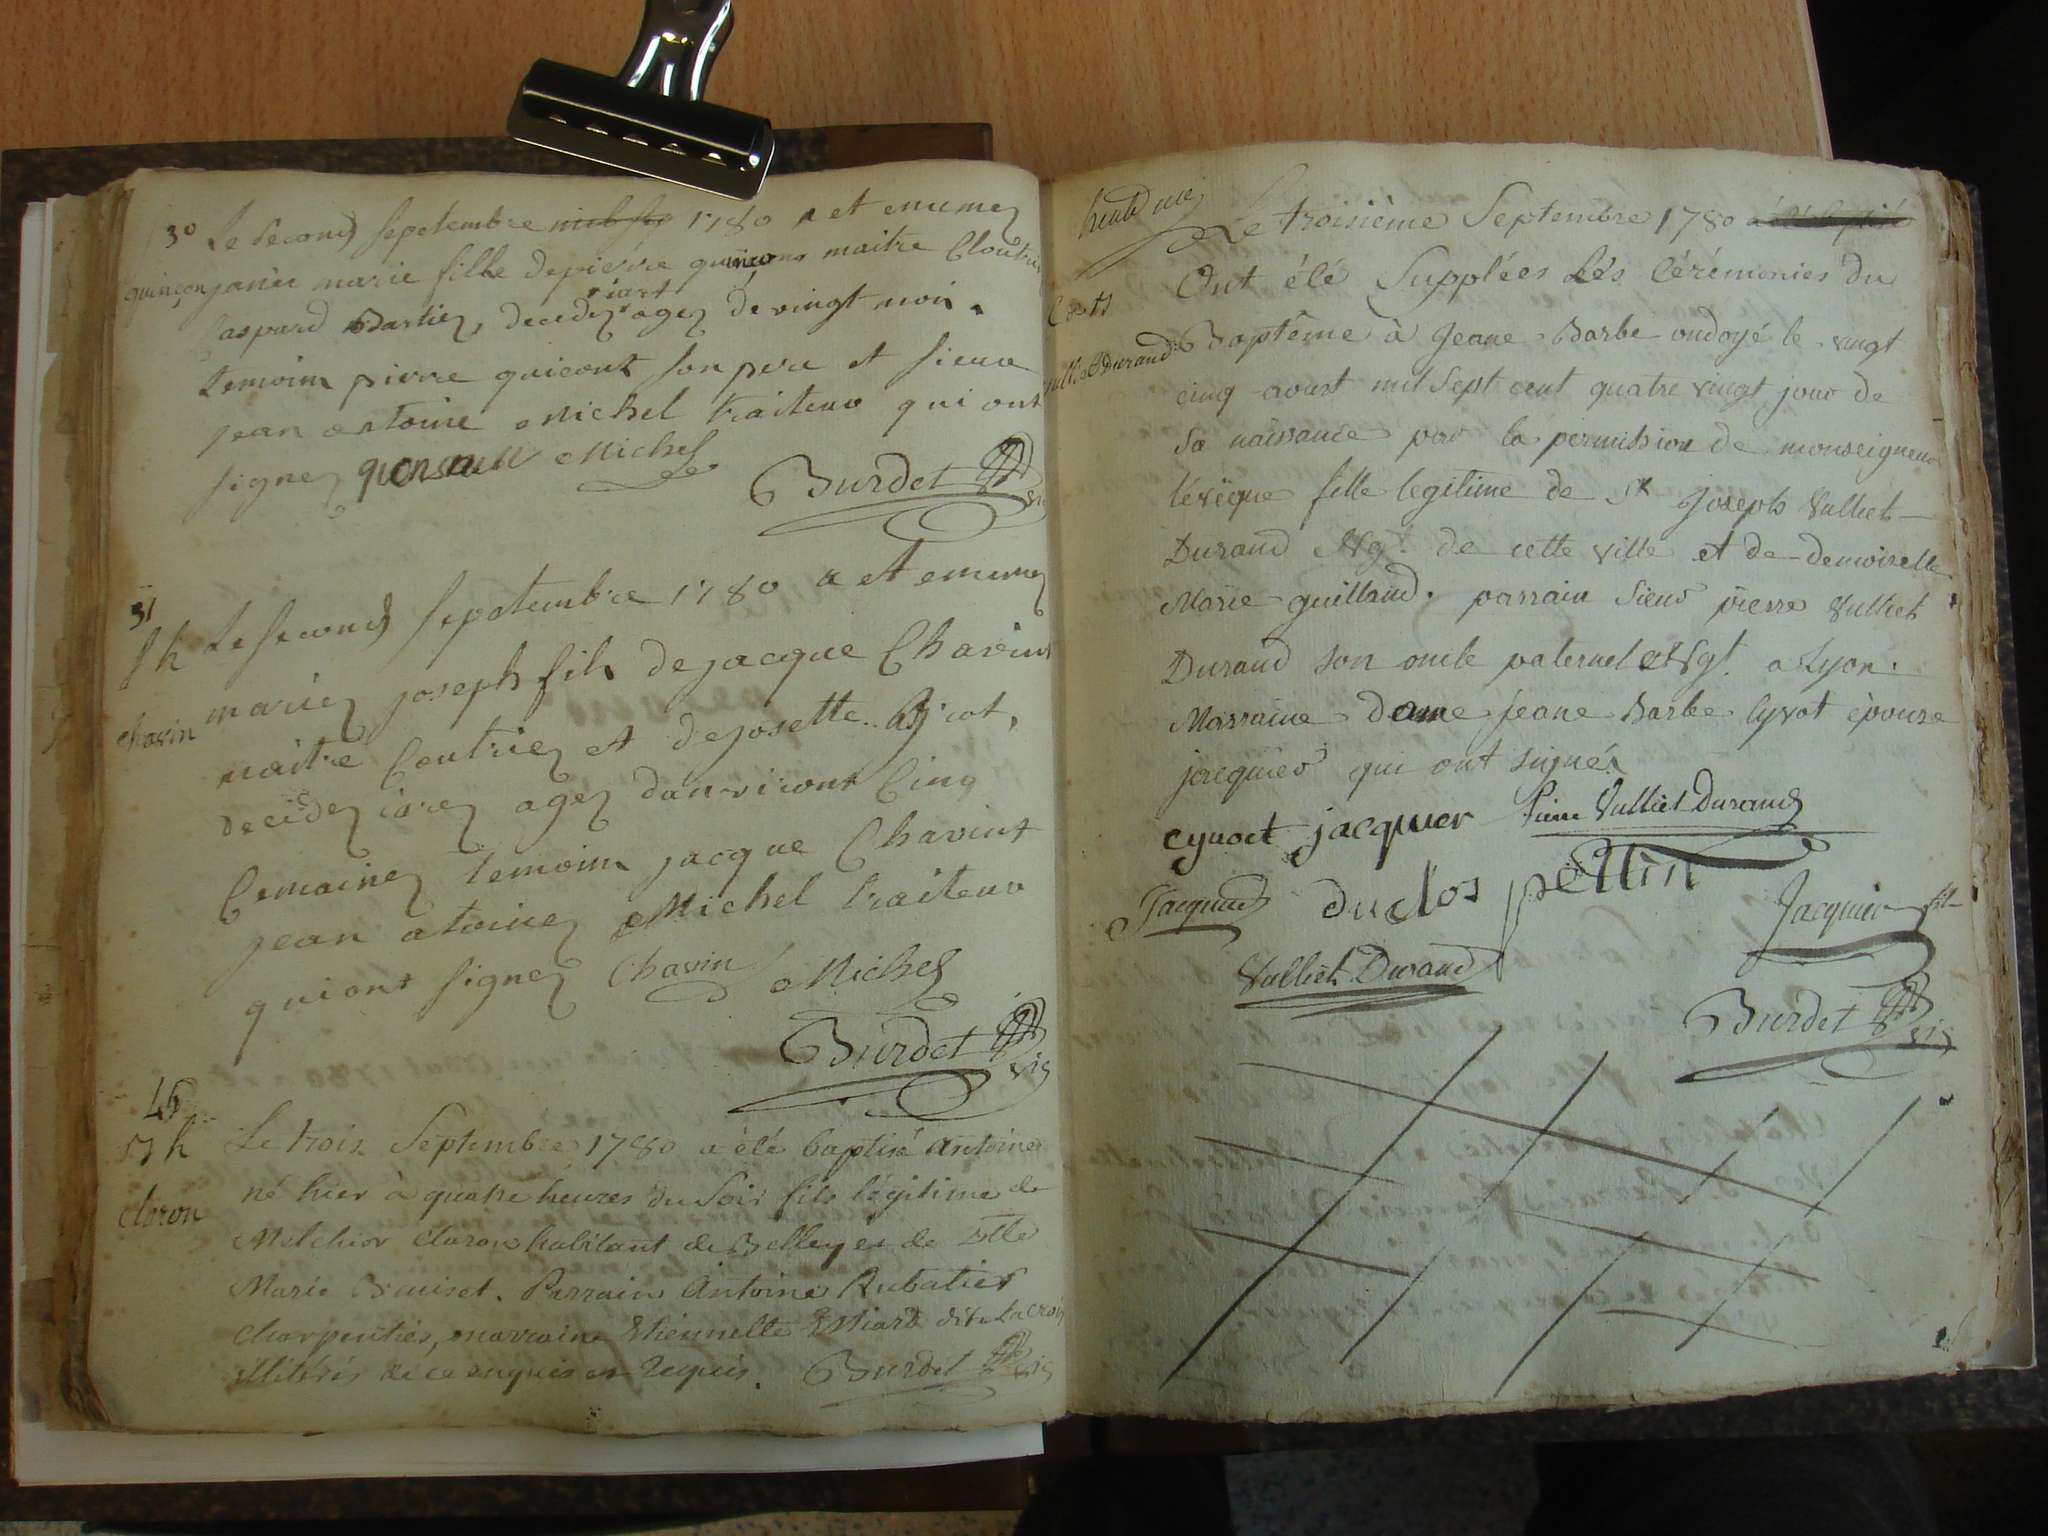 30 Le second sepetembre 1780 a et enumez
quinçon janne marie fille de pierre quinçon maitre Cloutrier
Caspard Bartiez, decedez iart agez de vingt moi.
temoim pierre quicont son pere et sieur
jean antoine Michel traiteur qui ont
signez Michel
Burdet vic
31
sh Le second sepetembre 1780 a et enumez
mariez joseph fils de jacque Chavint
chavin maitre Coutriez et de josette
decedez iarez agez danviront Cinq
Cemainez temoim jacque Chavint
jean atoinez Michel traiteur
qui ont signez Chavin Michel
Burdet vic
46
Bh Le trois Septembre 1780 a été baptisé antoine
né hier à quatre heures du Soir fils légitime de
Claron Melchior Claron habitant de Belley et de
Marie Parrain Antoine Rubatier
Charpentier, marraine Etiennette dite Lacroix
illitérés de ce enquis et requis. Burdet vic
Le troisième Septembre 1780 a été baptisé
Ont été Supplées Les Cérémonies du
Vulliet Durand Baptême à Jeane Barbe ondoyé le vingt
cinq aoust mil Sept cent quatre vingt jour de
Sa naissance par la permission de monseigneur
l'évêque fille legitime de Sr Joseph Vulliet
Durand Ngt. de cette ville et de demoiselle
Marie guilland. parrain Sieur pierre Vulliet
Durand son oncle paternel et Ngt. a Lyon.
Marraine dame jeane Barbe Cyvot épouse
jacquier qui ont signés
cyvoct jacquier Pierre Vulliet Durand
Jacquier duclos pettin Jacquier fils
Vulliet Durand
Burdet vic